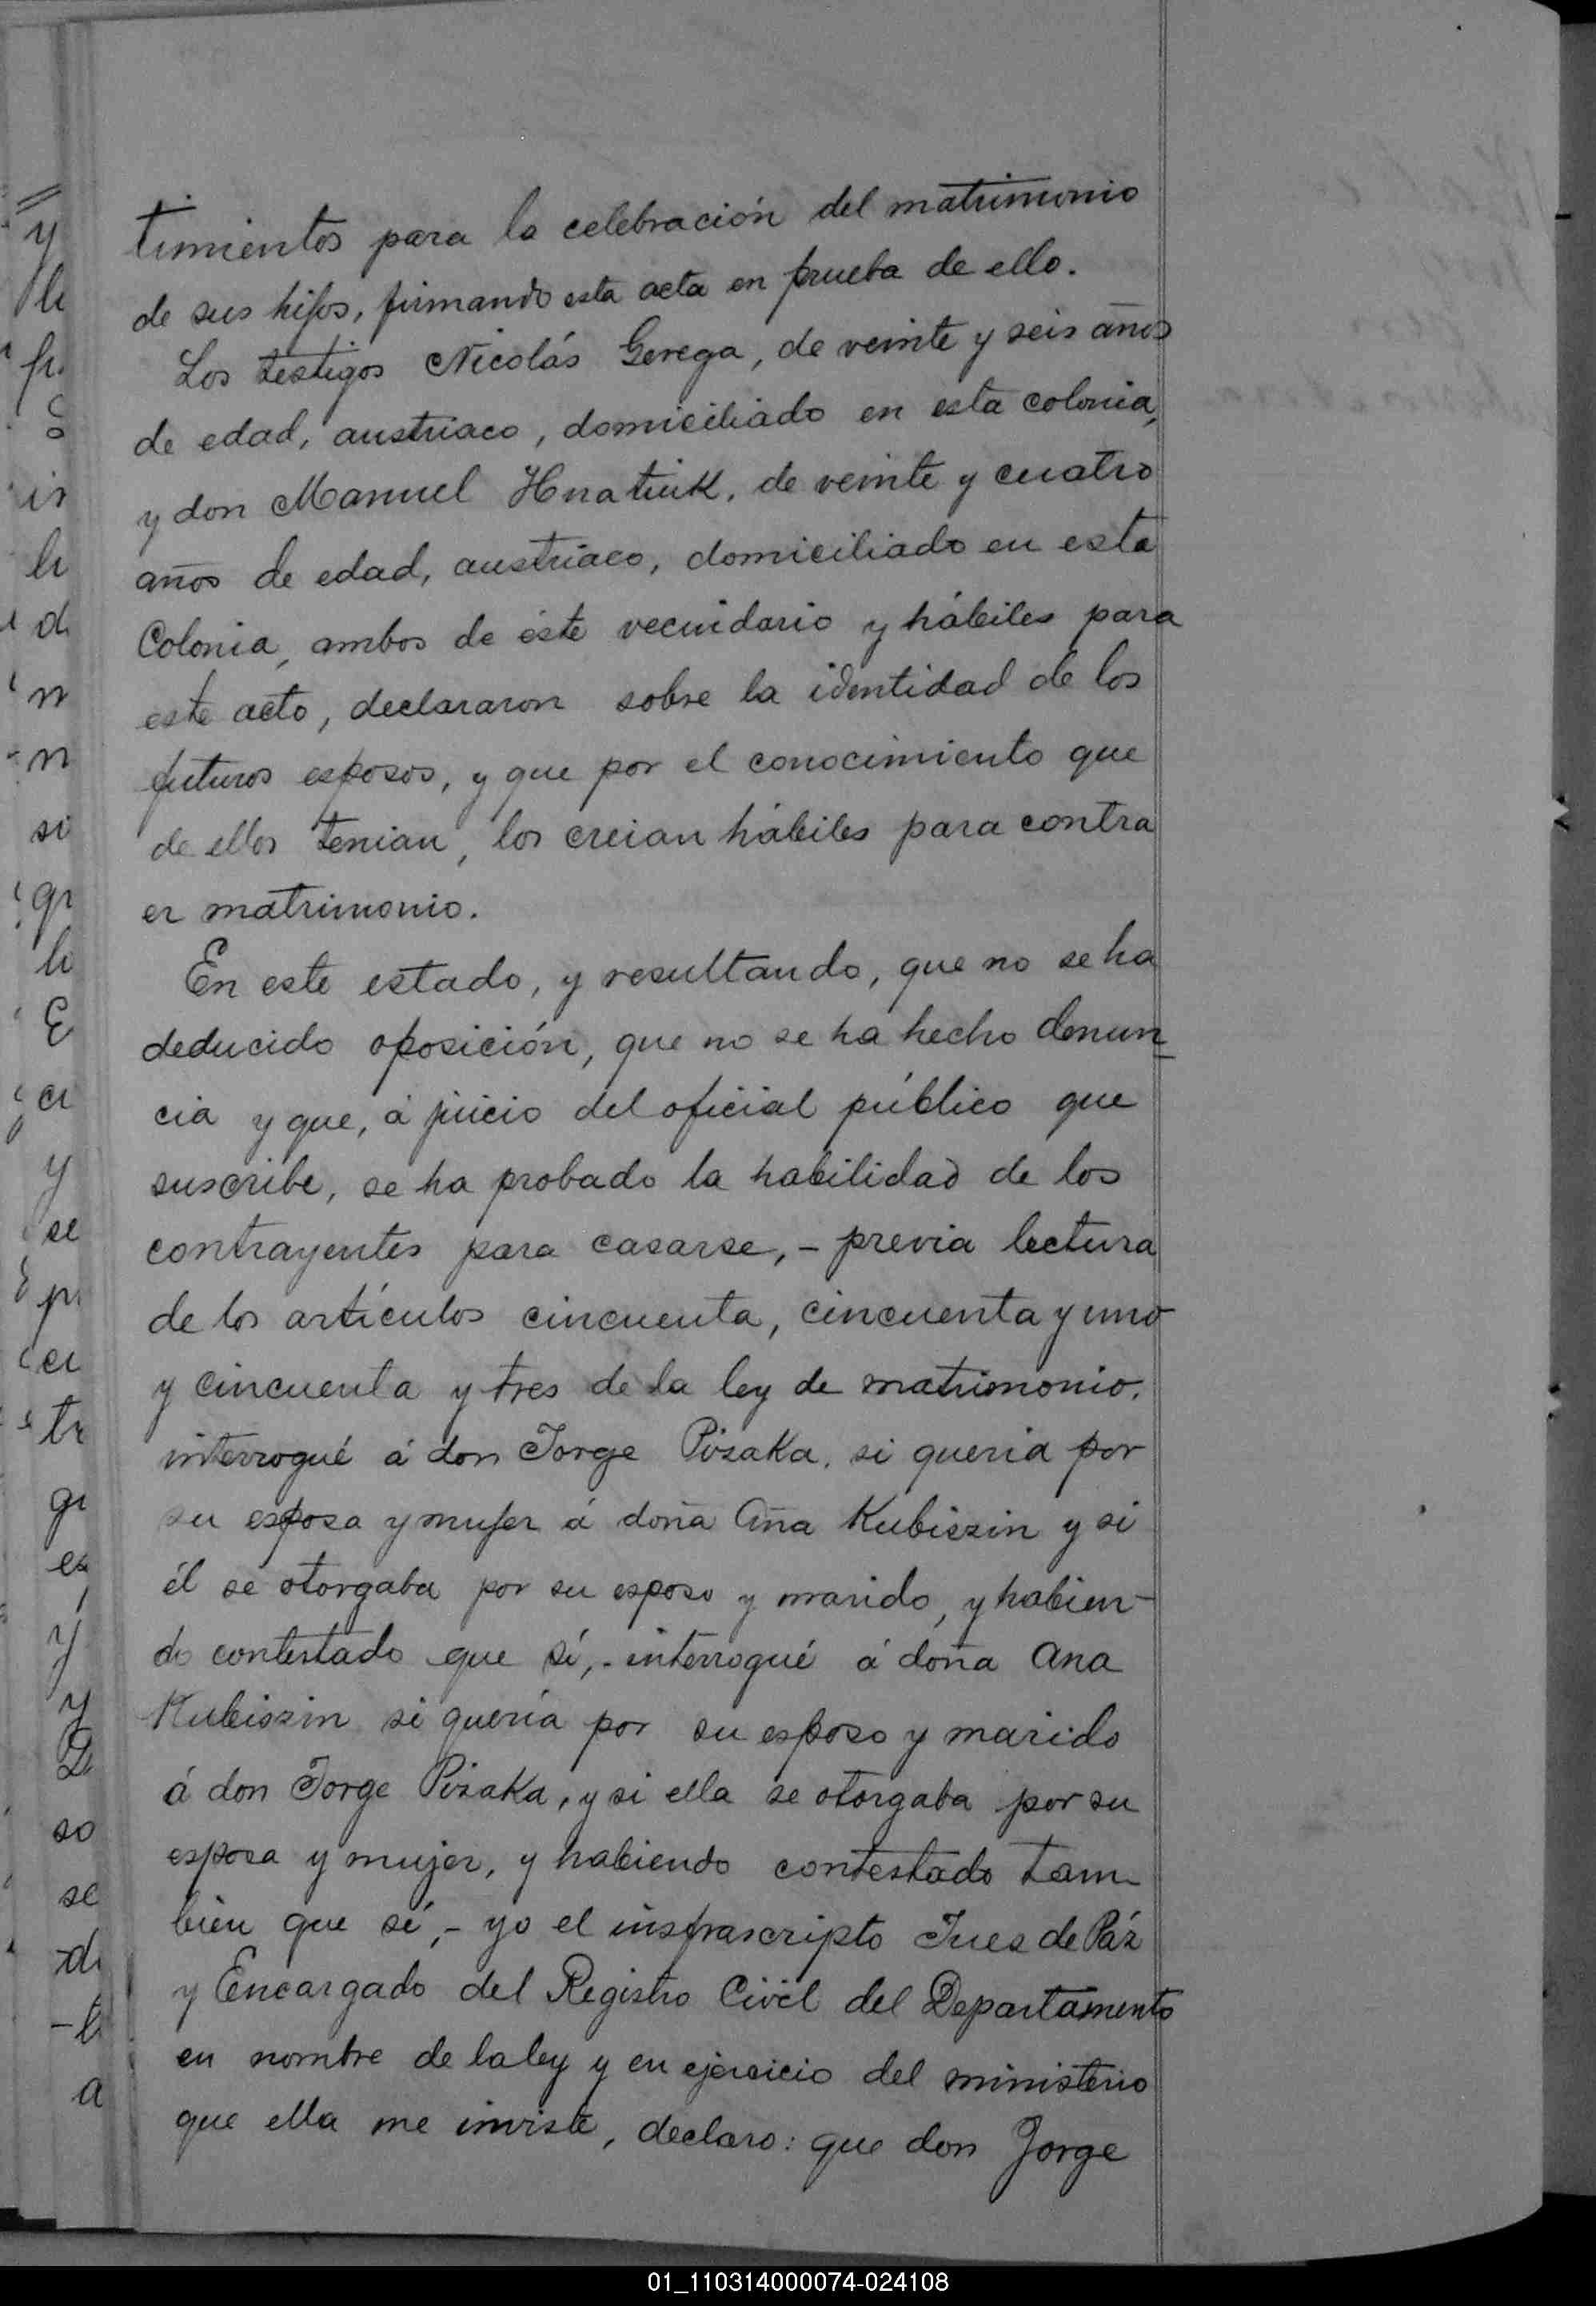 timientos para la celebración del matrimonio
de sus hijos, firmando esta acta en prueba de ello.
Los testigos Nicolás Gerega, de veinte y seis años
de edad, austriaco, domiciliado en esta colonia,
y don Manuel Hnatiuk, de veinte y cuatro
años de edad, austriaco, domiciliado en esta
Colonia, ambos de éste vecindario y hábiles para
este acto, declararon sobre la identidad de los
futuros esposos, y que por el conocimiento que
de ellos tenian, los creian hábiles para contra
er matrimonio.
En este estado, y resultando, que no se ha
deducido oposición, que no se ha hecho denun_
cia y que, á juicio del oficial público que
suscribe, se ha probado la habilidad de los
contrayentes para casarse, - previa lectura
de los artículos cincuenta, cincuenta y uno
y cincuenta y tres de la ley de matrimonio,
interrogué á don Jorge Pizaka, si queria por
su esposa y mujer á doña Ana Kubiszin y si
él se otorgaba por su esposo y marido, y habien-
do contestado que sí, - interrogué á doña Ana
Kubiszin si quería por su esposo y marido
á don Jorge Pizaka, y si ella se otorgaba por su
esposa y mujer, y habiendo contestado tam-
bien que sí, - yo el insfrascripto Juez de Páz
y Encargado del Registro Civil del Departamento
en nombre de la ley y en ejercicio del ministerio
que ella me inviste, declaro: que don Jorge
01_110314000074-024108